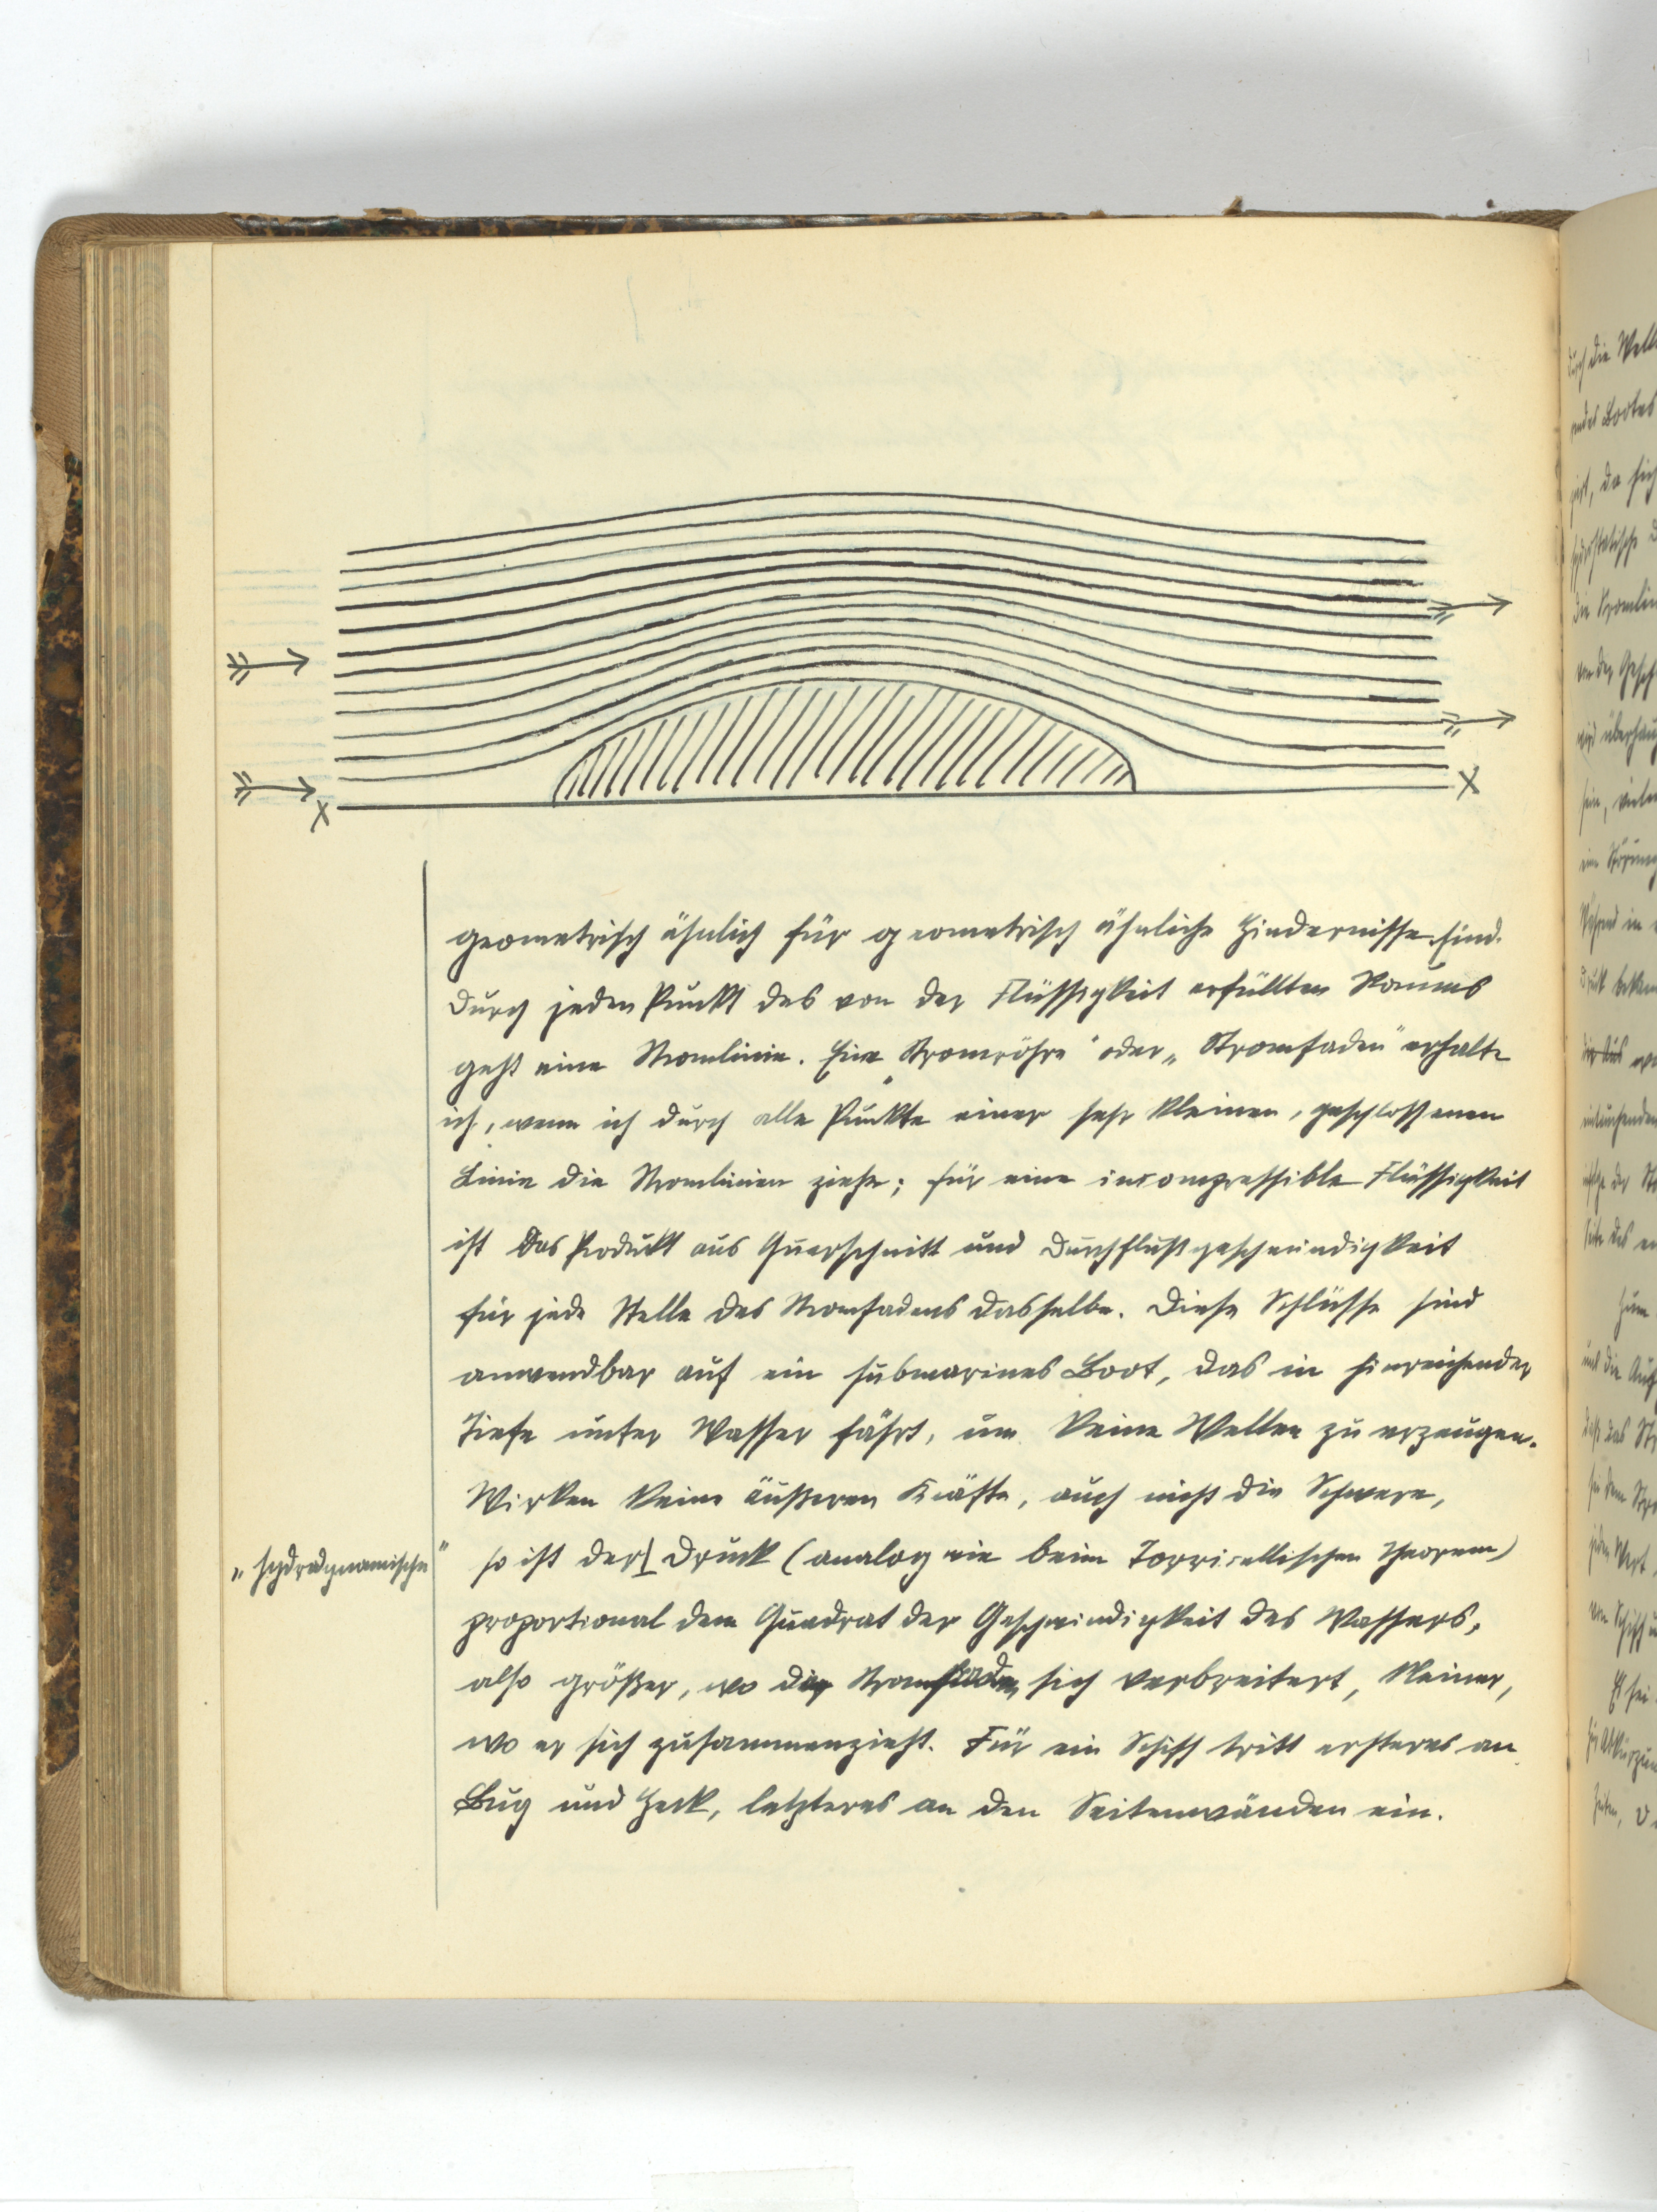 X
X
geometrisch ähnlich für geometrisch ähnliche Hindernisse sind.
Durch jeden Punkt des von der Flüssigkeit erfüllten Raumes
geht eine Stromlinie. Eine „Stromröhre" oder „Stromfaden" erhalte
ich, wenn ich durch alle Punkte einer sehr kleinen, geschlossenen
Linie die Stromlinien ziehe; für eine incompressible Flüssigkeit
ist das Produkt aus Querschnitt und Durchflußgeschwindigkeit
für jede Stelle des Stromfadens dasselbe. Diese Schlüsse sind
anwendbar auf ein submarines Boot, das in hinreichender
Tiefe unter Wasser fährt, um keine Wellen zu erzeugen.
Wirken keine äußeren Kräfte, auch nicht die Schwere,
„hydrodynamische"
so ist der Druck (analog wie beim Torricellischen Theorem)
proportional dem Quadrat der Geschwindigkeit des Wassers,
also größer, wo der Stromfaden sich verbreitert, kleiner,
wo er sich zusammenzieht. Für ein Schiff tritt ersteres an
Bug und Heck, letzteres an den Seitenwänden ein.
durch die
Bootes